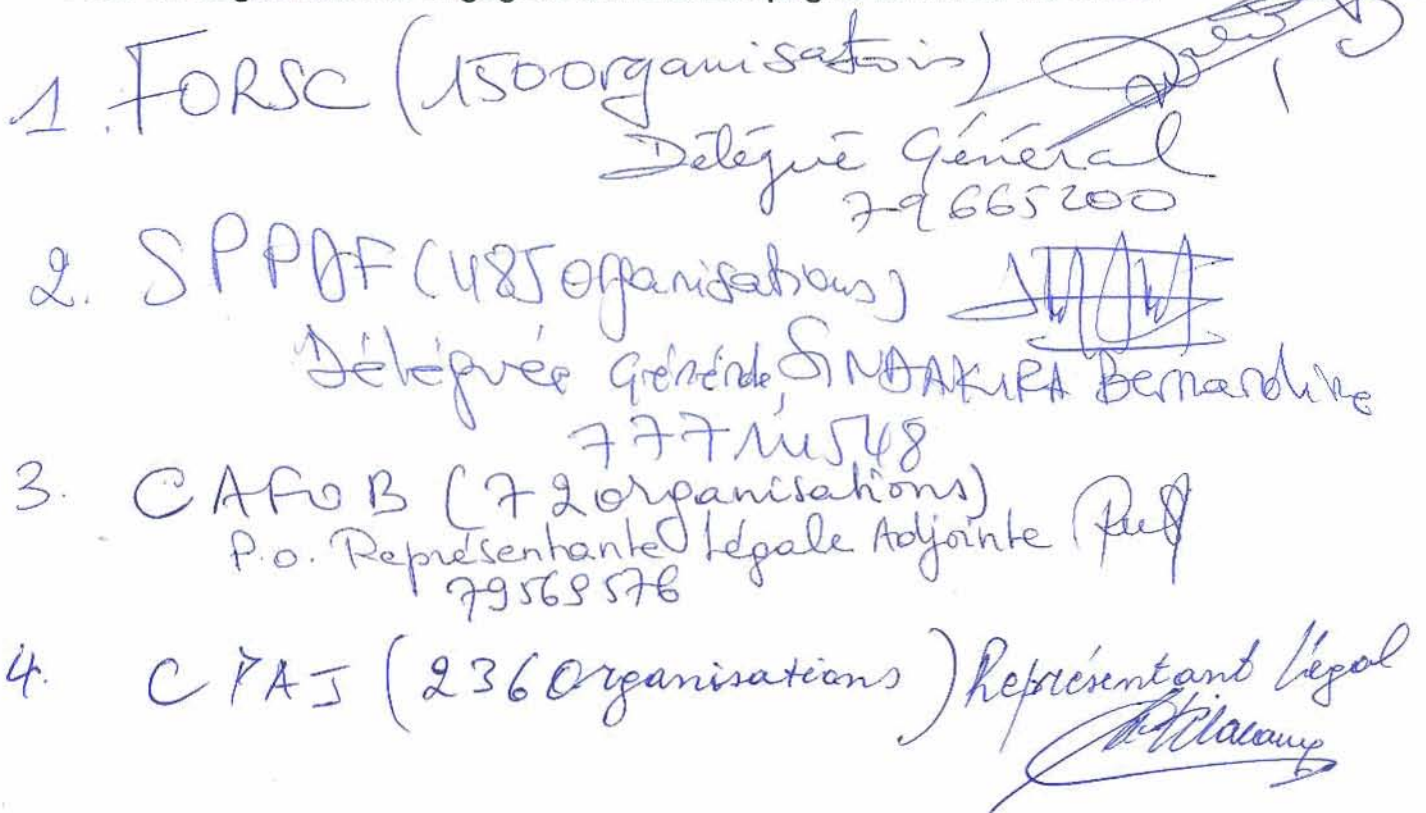 1. FORSC (150 organisations)
Délégué Général
79 665 200
2. SPPDF (485 organisations)
Déléguée Générale, SINDAKIRA Bernardine
3. CAFOB (72 organisations)
P.o. Représentante Légale Adjointe
79569576
4. CPAJ (236 Organisations) Représentant légal